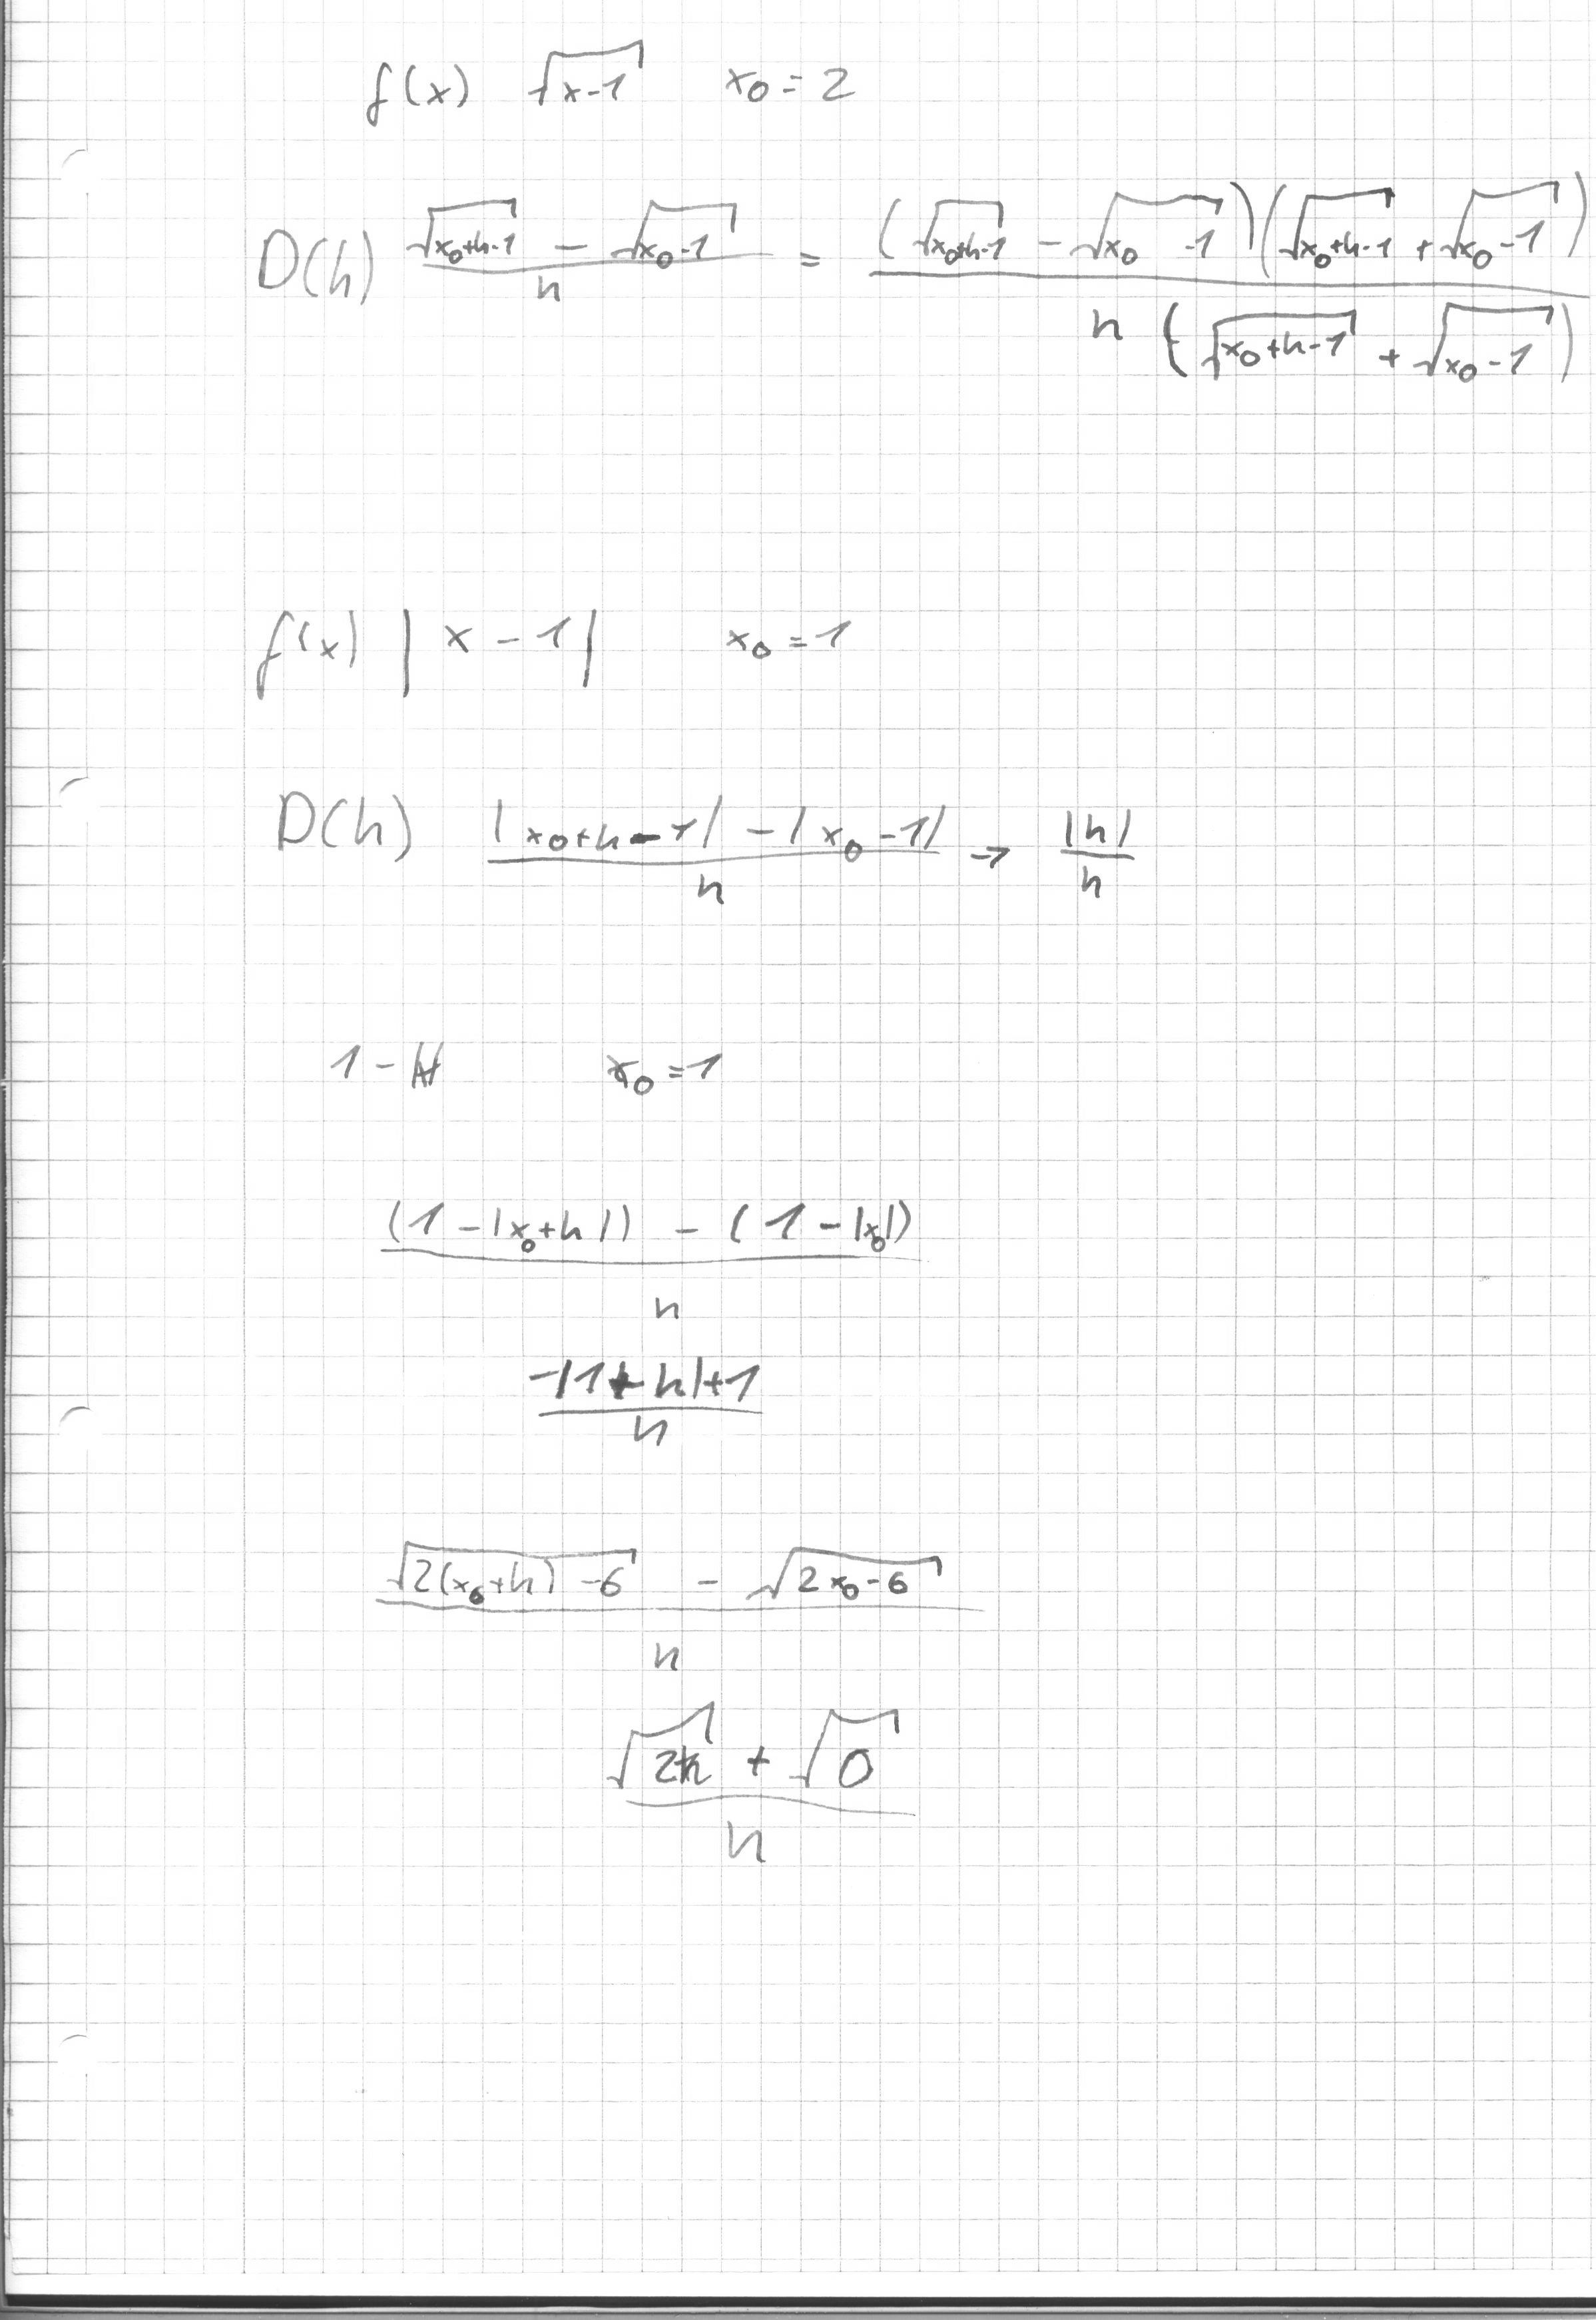 f(x) √(x-1) x₀ = 2
D(h) (√(x₀+h-1) - √(x₀-1))/h = ((√(x₀+h-1) - √(x₀-1))(√(x₀+h-1) + √(x₀-1)))/(h(√(x₀+h-1) + √(x₀-1)))
f(x) |x-1| x₀ = 1
D(h) (|x₀+h-1| - |x₀-1|)/h → |h|/h
1 - |x| x₀ = 1
((1-|x₀+h|) - (1-|x₀|))/h
(-|1+h|+1)/h
(√(2(x₀+h)-6) - √(2x₀-6))/h
(√(2h) + √0)/h